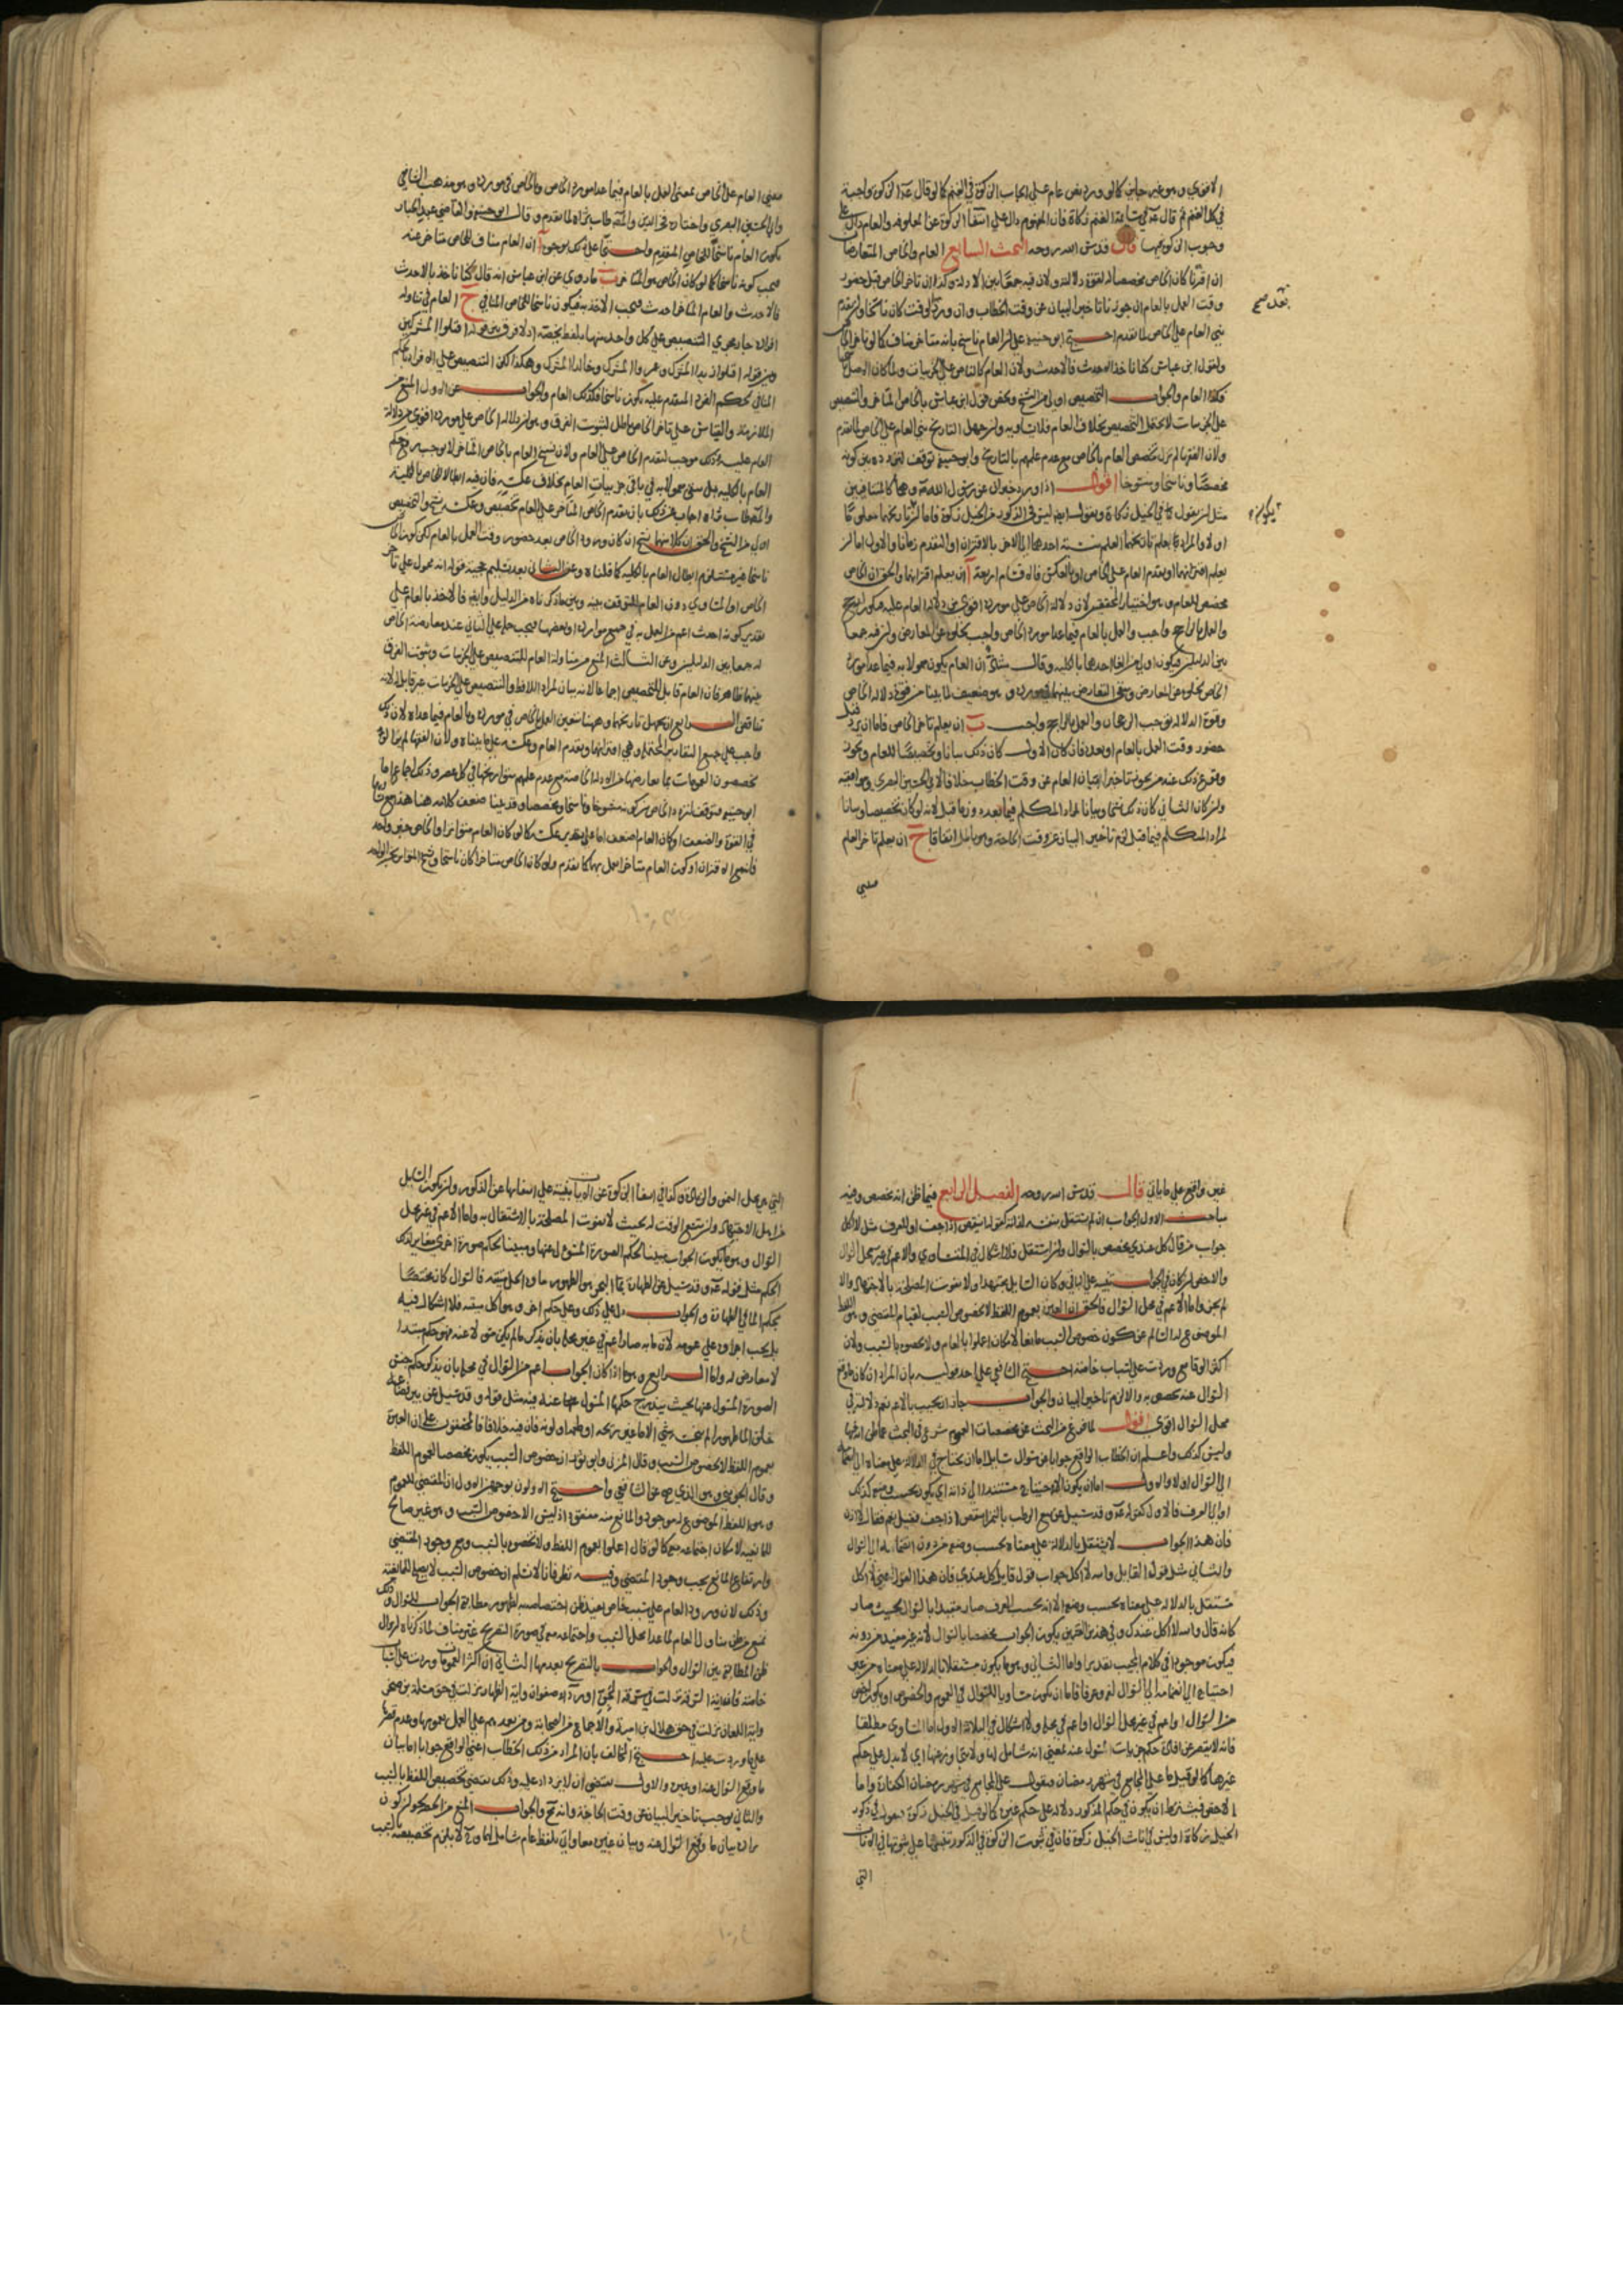 الاقوي وهو غير جايز كما لو ورد نص عام علي ايجاب الزكوة في الغنم كما لو قال عم الزكوة واجبة
في كل الغنم ثم قال عم في سائمة الغنم زكاة فان المفهوم دال علي انتفا الزكوة عن المعلوفة والعام دال علي
وجوب الزكوة فيها قال قدس الله روحه البحث السابع العام والخاص المتعارضان
ان اقترنا كان الخاص مخصصا لقوة دلالته ولان فيه جمعا بين الادلة وكذا ان تاخر الخاص قبل حضور
وقت العمل بالعام ان جوزنا تاخير البيان عن وقت الخطاب وان ورد بعد الوقت كان ناسخا وان تقدم
بني العام علي الخاص لما تقدم احتج ابو حنيفة علي ان العام ناسخ بانه متاخر مناف كما لو تاخر الخاص
ولقول ابن عباس كنا ناخذ بالاحدث فالاحدث ولان العام كالناص علي الجزييات ولما كان الاصل ناسخا
فكذا العام والجواب التخصيص اولي من النسخ ويخص قول ابن عباس بالخاص المتاخر والتنصيص
علي الجزييات لا يحتمل التخصيص بخلاف العام فلا تساويه وان جهل التاريخ بني العام علي الخاص لما تقدم
ولان الفقها لم تزل تخصص العام بالخاص مع عدم علمهم بالتاريخ وابو حنيفة توقف لتردده بين كونه
مخصصا وناسخا ومنسوخا اقول اذا ورد خبران عن رسول الله وهما كالمتنافيين
مثل ان يقول في الخيل زكاة ويقول ايضا ليس في الذكور من الخيل زكوة فاما ان تاريخهما معلوما
او لا والمراد
يعلم اقترانهما او تقدم العام علي الخاص او بالعكس فالاقسام اربعة ا ان يعلم اقترانهما والحق ان الخاص
مخصص للعام وهو اختيار المحققين لان دلالة الخاص علي مورده اقوي من دلالة العام عليه فيكون ارجح
والعمل بالراجح واجب والعمل بالعام فيما عدا مورد الخاص واجب لخلوه عن المعارض ولان فيه جمعا
بين الدليلين فيكون اولي من الغا احدهما بالكلية وقال ان العام يكون معمولا به فيما عدا مورد
الخاص لخلوه عن المعارض وبقي التعارض بينهما في مورده وهو ضعيف لما بينا من قوة دلالة الخاص
وقوة الدلالة توجب الرجحان والعمل بالراجح واجب ب ان يعلم تاخر الخاص فاما ان يرد قبل
حضور وقت العمل بالعام او بعده فان كان الاول كان ذلك بيانا وتخصيصا للعام ويجوز
وقوع ذلك عند من يجوز تاخير بيان العام عن وقت الخطاب خلافا لابي الحسين البصري وموافقيه
وان كان الثاني كان ذلك نسخا وبيانا لمراد المتكلم فيما بعد دون ما قبل لانه لو كان تخصيصا وبيانا
لمراد المتكلم فيما قبل لزم تاخير البيان عن وقت الحاجة وهو باطل اتفاقا ج ان يعلم تاخر العام
معني العام علي الخاص بمعني العمل بالعام فيما عدا مورد الخاص وبالخاص في مورده وهو مذهب الشافعي
وابي الحسين البصري واختاره فخر الدين والمص طاب ثراه لما تقدم وقال ابو حنيفة والقاضي عبد الجبار
يكون العام ناسخا للخاص المتقدم واحتجا علي ذلك بوجوه ا ان العام مناف للخاص متاخر عنه
فيجب كونه ناسخا كما لو كان الخاص هو المتاخر ب ما روي عن ابن عباس انه قال كنا ناخذ بالاحدث
فالاحدث والعام المتاخر احدث فيجب الاخذ به فيكون ناسخا للخاص المنافي ج العام في تناوله
افراده جار مجري التنصيص علي كل واحد منها بلفظ يخصه اذ لا فرق بين قوله اقتلوا المشركين
وبين قوله اقتلوا زيد المشرك وعمروا المشرك وخالدا المشرك وهكذا لكن التنصيص علي الافراد بالحكم
المنافي لحكم الفرد المتقدم عليه يكون ناسخا فكذلك العام والجواب عن الاول المنع من
الملازمة والقياس علي تاخر الخاص باطل لثبوت الفرق وهو ان دلالة الخاص علي مورده اقوي من دلالة
العام عليه وذلك موجب لتقدم الخاص علي العام ولان نسخ العام بالخاص المتاخر لا يوجب رفع حكم
العام بالكلية بل يبقي معمولا به في باقي جزييات العام بخلاف عكسه فان فيه ابطالا للخاص بالكلية
والمص طاب ثراه اجاب عن ذلك بان تقدم الخاص المتاخر علي العام تخصيص وعكسه نسخ والتخصيص
اولي من النسخ والحق ان كلا منهما نسخ ان كان ورود الخاص بعد حضور وقت العمل بالعام لكن كون الخاص
ناسخا غير مستلزم ابطال العام بالكلية كما قلناه وعن الثاني بعد تسليم حجية قوله انه محمول علي تاخر
الخاص او المساوي دون العام للتوفيق بينه وبين ما ذكرناه من الدليل وايضا فالاخذ بالعام علي
تقدير كونه احدث اعم من العمل به في جميع موارده او بعضها فيجب حمله علي الثاني عند معارضة الخاص
له جمعا بين الدليلين وعن الثالث المنع من مساواة العام للتنصيص علي الجزييات وثبوت الفرق
بينهما ظاهر فان العام قابل للتخصيص اجماعا لانه بيان لمراد اللافظ والتنصيص علي الجزييات غير قابل له لانه
تناقض الرابع ان يجهل تاريخهما وههنا يتعين العمل بالخاص في مورده وبالعام فيما عداه لان ذلك
واجب علي جميع التقادير المحتملة وهي اقترانهما وتقدم العام وعكسه علي ما بيناه ولان الفقها لم يزالوا
يخصصون العمومات بما يعارضها من الادلة الخاصة مع عدم علمهم بتواريخها في كل عصر وذلك اجماع اما
ابو حنيفة فتوقف لتردد الخاص بين كونه منسوخا وناسخا ومخصصا وقد بينا ضعف كلامه هنا هذا مع تساويهما
في القوة والضعف او كان العام اضعف اما علي تقدير عكسه كما لو كان العام متواترا والخاص خبر واحد
فان صح الاقتران او كون العام متاخرا عمل بهما كما تقدم ولو كان الخاص متاخرا كان ناسخا ونسخ المتواتر بخبر الواحد
غير واقع علي ما ياتي قال قدس الله روحه الفصل الرابع فيما ظن انه مخصص وفيه
مباحث الاول الجواب ان لم يستقل بنفسه لذاته كقوله اينقص اذا جف او للعرف مثل لا اكل
جواب من قال كل عندي مخصص بالسوال وان استقل فلا اشكال في المساوي والاعم في غير محل السوال
والاخص ان كان في الجواب تنبيه علي الباقي وكان السايل مجتهدا ولا تفوت المصلحة بالاجتهاد والا
لم يجز واما الاعم في محل السوال فالحق ان العبرة بعموم اللفظ لا بخصوص السبب لقيام المقتضي وهو اللفظ
الموضوع له السالم عن كون خصوص السبب مانعا لامكان اعملوا بالعام ولا تخصوه بالسبب ولان
اكثر الوقايع وردت علي اسباب خاصة احتج الشافعي علي احد قوليه بان المراد ان كان ما وقع
السوال عنه تخصص به والا لزم تاخير البيان والجواب جاز ان يجيب بالاعم نعم دلالته علي
محل السوال اقوي اقول لما فرغ من البحث عن مخصصات العموم شرع في البحث عما ظن انه منها
وليس كذلك واعلم ان الخطاب الواقع جوابا عن سوال سايل اما ان يحتاج في الدلالة علي معناه الي انضمامه
الي السوال او لا والاول اما ان يكون الاحتياج مستندا الي ذاته اي يكون بحسب وضعه كذلك
او الي العرف فالاول كقوله عم وقد سيل عن بيع الرطب بالتمر اينقص اذا جف فقيل نعم فقال لا اذن
فان هذا الجواب لا يستقل بالدلالة علي معناه بحسب وضعه من دون انضمامه الي السوال
والثاني مثل قول القايل والله لا اكل جواب قول قايل كل عندي فان هذا القول اعني لا اكل
مستقل بالدلالة علي معناه بحسب وضعه الا انه بحسب العرف صار مقيدا بالسوال بحيث صار
كانه قال والله لا اكل عندك وفي هذين القسمين يكون الجواب مخصصا بالسوال لانه غير مفيد من دونه
فيكون موجودا في كلام المجيب تقديرا واما الثاني وهو ما يكون مستقلا بالدلالة علي معناه من غير
احتياج الي انضمامه الي السوال لغة وعرفا فاما ان يكون مساويا للسوال في العموم والخصوص او يكون اخص
من السوال او اعم في غير محل السوال او اعم في محله ولا اشكال في الثلاثة الاول اما المساوي مطلقا
غيرها كما لو قيل ما علي المجامع في شهر رمضان فيقول علي المجامع في شهر رمضان الكفارة واما
الاخص فيشترط ان يكون في حكم المذكور دلالة علي حكم غيره كما لو قيل في الخيل زكوة فيقول في ذكور
الخيل زكاة او ليس في اناث الخيل زكوة فان في ثبوت الزكوة في الذكور تنبيها علي ثبوتها في الاناث
التي
التي هي محل السمن والزيادة وكذا في انتفا الزكوة عن الاناث تنبيه علي انتفايها عن الذكور وان يكون السايل
من اهل الاجتهاد وان يتسع الوقت له بحيث لا تفوت المصلحة بالاشتغال به واما الاعم في غير محل
السوال وهو ما يكون الجواب مبينا لحكم الصورة المسئول عنها ومبينا لحكم صورة اخري مغاير لذلك
الحكم مثل قوله عم وقد سيل عن الطهارة بما البحر هو الطهور ماوه الحل ميتته فالسوال كان مختصا
بحكم الما في الطهارة والجواب دل علي ذلك وعلي حكم اخر وهو اكل ميتته فلا اشكال فيه
بل يجب اجراوه علي عمومه
لا معارض له واما الرابع وهو ما اذا كان الجواب اعم من السوال في محله بان يذكر حكم جنس
الصورة المسئول عنها بحيث يندرج حكمها المسئول عنها عنه فيه مثل قوله وقد سيل عن بير بضاعة
خلق الما طهورا لم ينجسه شي الا ما غير ريحه او طعمه او لونه فان فيه خلافا فالمحققون علي ان العبرة
بعموم اللفظ لا بخصوص السبب وقال المزني وابو ثور ان خصوص السبب يكون مخصصا لعموم اللفظ
وقال الجويني وهو الذي صح عن الشافعي واحتج الاولون بوجهين الاول ان المقتضي للعموم
وهو اللفظ الموضوع له موجود والمانع منه مفقود اذ ليس الا خصوص السبب وهو غير صالح
للمانعية لامكان اجتماعه معه كما لو قال اعملوا بعموم اللفظ ولا تخصوه بالسبب ومع وجود المقتضي
وارتفاع المانع يجب وجود المقتضي وفيه نظر فانا لا نسلم ان خصوص السبب لا يصلح للمانعية
وذلك لان ورود العام علي سبب خاص يفيد ظن اختصاصه به لظهور مطابقة الجواب للسوال
تمنع من ظن تناول العام لما عدا محل السبب واجتماعه معه في صورة التصريح غير مناف لما ذكرناه لزوال
ظن المطابقة بين السوال والجواب بالتصريح بعدمها الثاني ان اكثر العمومات وردت علي اسباب
خاصة فان اية السرقة نزلت في سرقة المجن او رداء صفوان واية الظهار نزلت في حق سلمة بن صخر
واية اللعان نزلت في حق هلال بن امية والاجماع من الصحابة ومن بعدهم علي العمل بعمومها وعدم قصرها
علي ما وردت عليه احتج المخالف بان المراد من ذلك الخطاب اعني الواقع جوابا اما بيان
ما وقع السوال عنه او غيره والاول يقتضي ان لا يزداد عليه وذلك يقتضي تخصيص اللفظ بالسبب
والثاني يوجب تاخير البيان عن وقت الحاجة وانه مح والجواب المنع من الحصر لجواز كون
مراده بيان ما وقع السوال عنه وبيان غيره معا واتي بلفظ عام شامل لهما وح لا يلزم تخصيصه بالسبب